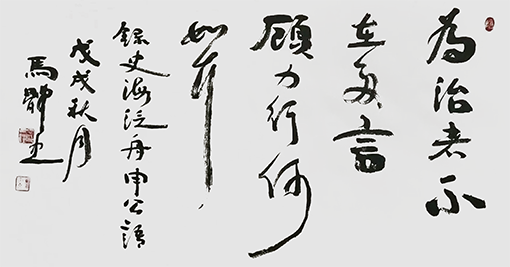 為治者不
在多言
顧力行何
如耳
錄史海泛舟申公語
戊戌秋月
馬